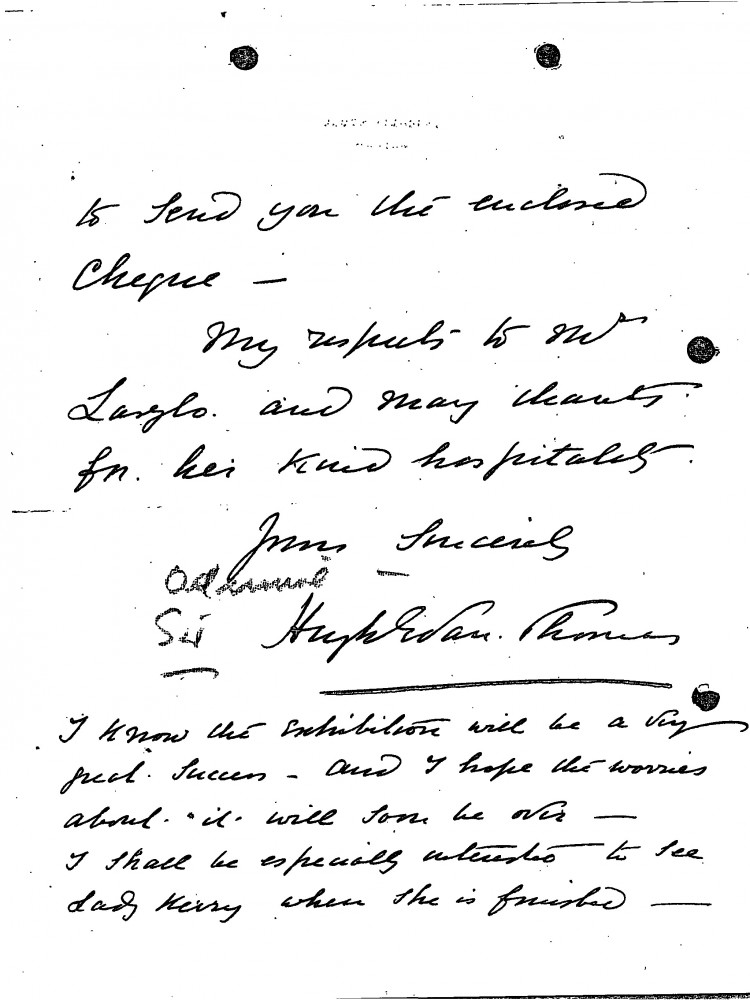 to send you the enclosed
Cheque —
My respects to Mrs
Laszlo. and many thanks
for. her kind hospitality.
Yours Sincerely
Admiral —
Sir Hugh Evan. Thomas
I know the exhibition will be a very
great. Success - and I hope the worries
about. "it. will soon be over —
I shall be especially interested to see
Lady Kerry when she is finished —